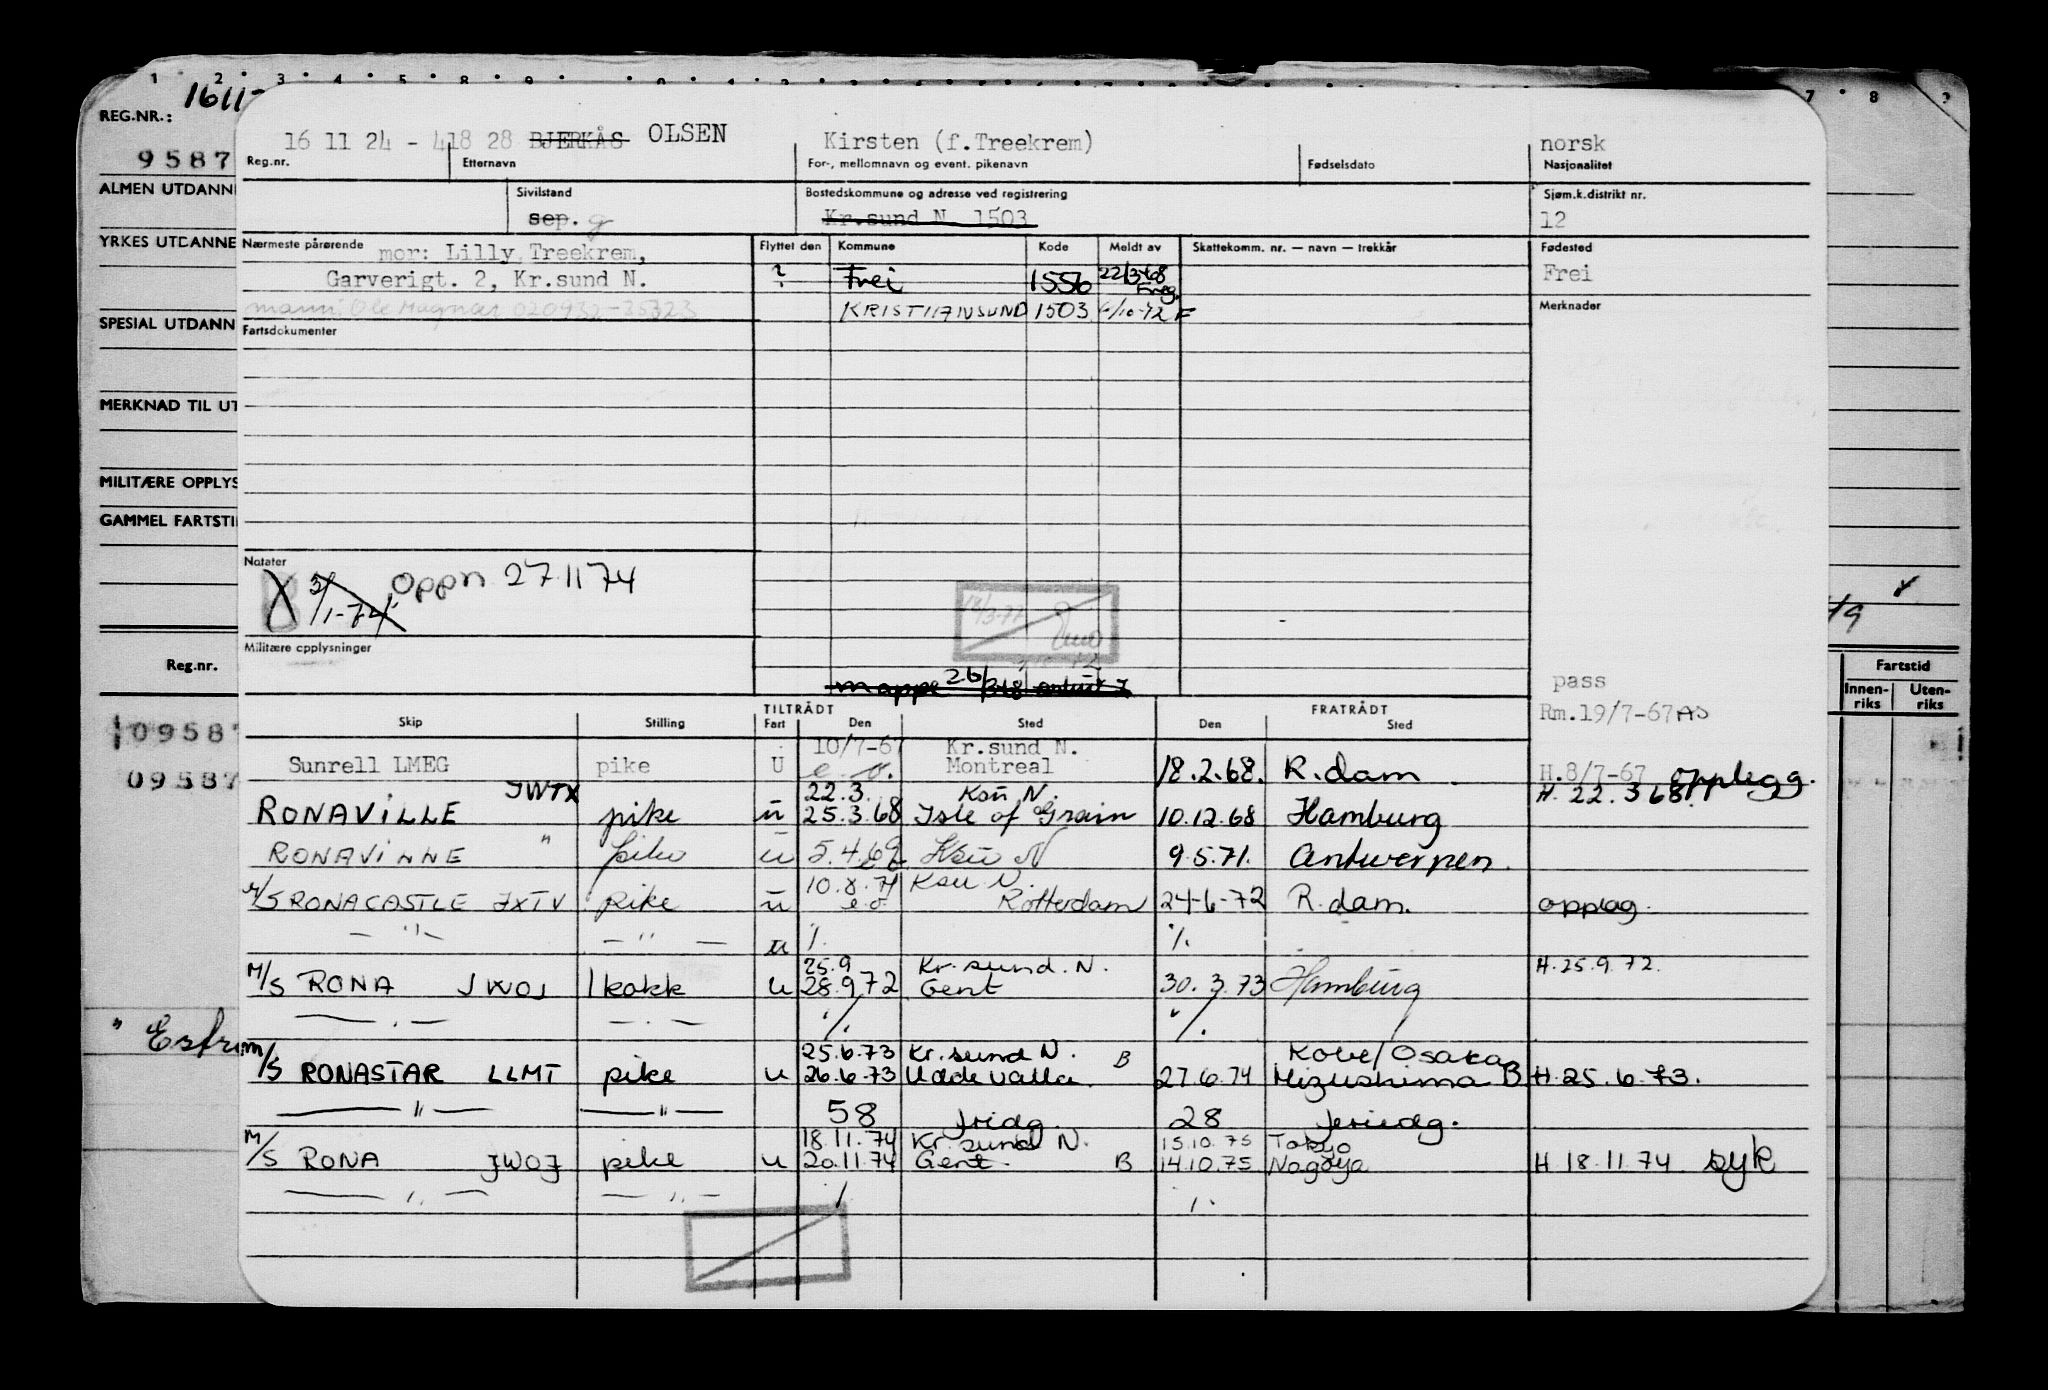 1 2 3 4 5 8 9
7 8
REG.NR.: 1611-
9587
ALMEN UTDANNE
YRKES UTDANNE
SPESIAL UTDANN
MERKNAD TIL UT
MILITÆRE OPPLYS
GAMMEL FARTSTI
Reg.nr.
09587
09587
" Estr
16 11 24 - 418 28 BJERKÅS OLSEN Kirsten (f.Treekrem) norsk
Reg.nr. Etternavn For-, mellomnavn og event. pikenavn Fødselsdato Nasjonalitet
Sivilstand Bostedskommune og adresse ved registrering Sjøm.k.distrikt nr.
sep. g Kr.sund N. 1503 12
Nærmeste pårørende Flyttet den Kommune Kode Meldt av Skattekomm. nr. — navn — trekkår Fødested
mor: Lilly Treekrem, ? Frei 1556 22/3-68 Freg. Frei
Garverigt. 2, Kr.sund N.
mann: Ole Magnar 020932-35323 KRISTIANSUND 1503 6/10-72 F Merknader
Fartsdokumenter
Notater
31/1-74 oppn 27.11 74
18/3-77
Militære opplysninger
mappe 26/368
pass
Rm.19/7-67 AS
TILTRÅDT FRATRÅDT
Skip Stilling Fart Den Sted Den Sted
10/7-67 Kr.sund N.
Sunrell LMEG pike U e.o. Montreal 18.2.68. R.dam H.8/7-67 opplegg.
JWTX 22.3. Ksu N. H. 22.3 68.
RONAVILLE pike u 25.3.68 Isle of Grain 10.12.68 Hamburg
RONAVINNE " pike u 5.4.69 Ksu N 9.5.71. Antwerpen.
10.8.71 Ksu N.
M/S RONACASTLE JXTV pike u e.o. Rotterdam 24-6-72 R.dam. opplag.
— " — — " — u /. /.
25.9 Kr.sund.N. H.25.9.72.
M/S RONA JWOJ kokk u 28.9.72 Gent 30.3.73 Hamburg
— . — — . — /. /.
25.6.73 Kr.sund N. Kobe/Osaka
M/S RONASTAR LLMT pike u 26.6.73 Uddevalla. B 27.6.74 Mizushima B H 25.6.73.
— " — — " — 58 fridg. 28 feriedg.
18.11.74 Kr.sund N. 15.10.75 Tokyo
M/S RONA JWOJ pike u 20.11.74 Gent. B 14.10.75 Nagoya H 18.11.74 syk
— " — — " — /. /.
Fartstid
Innen-riks Uten-riks